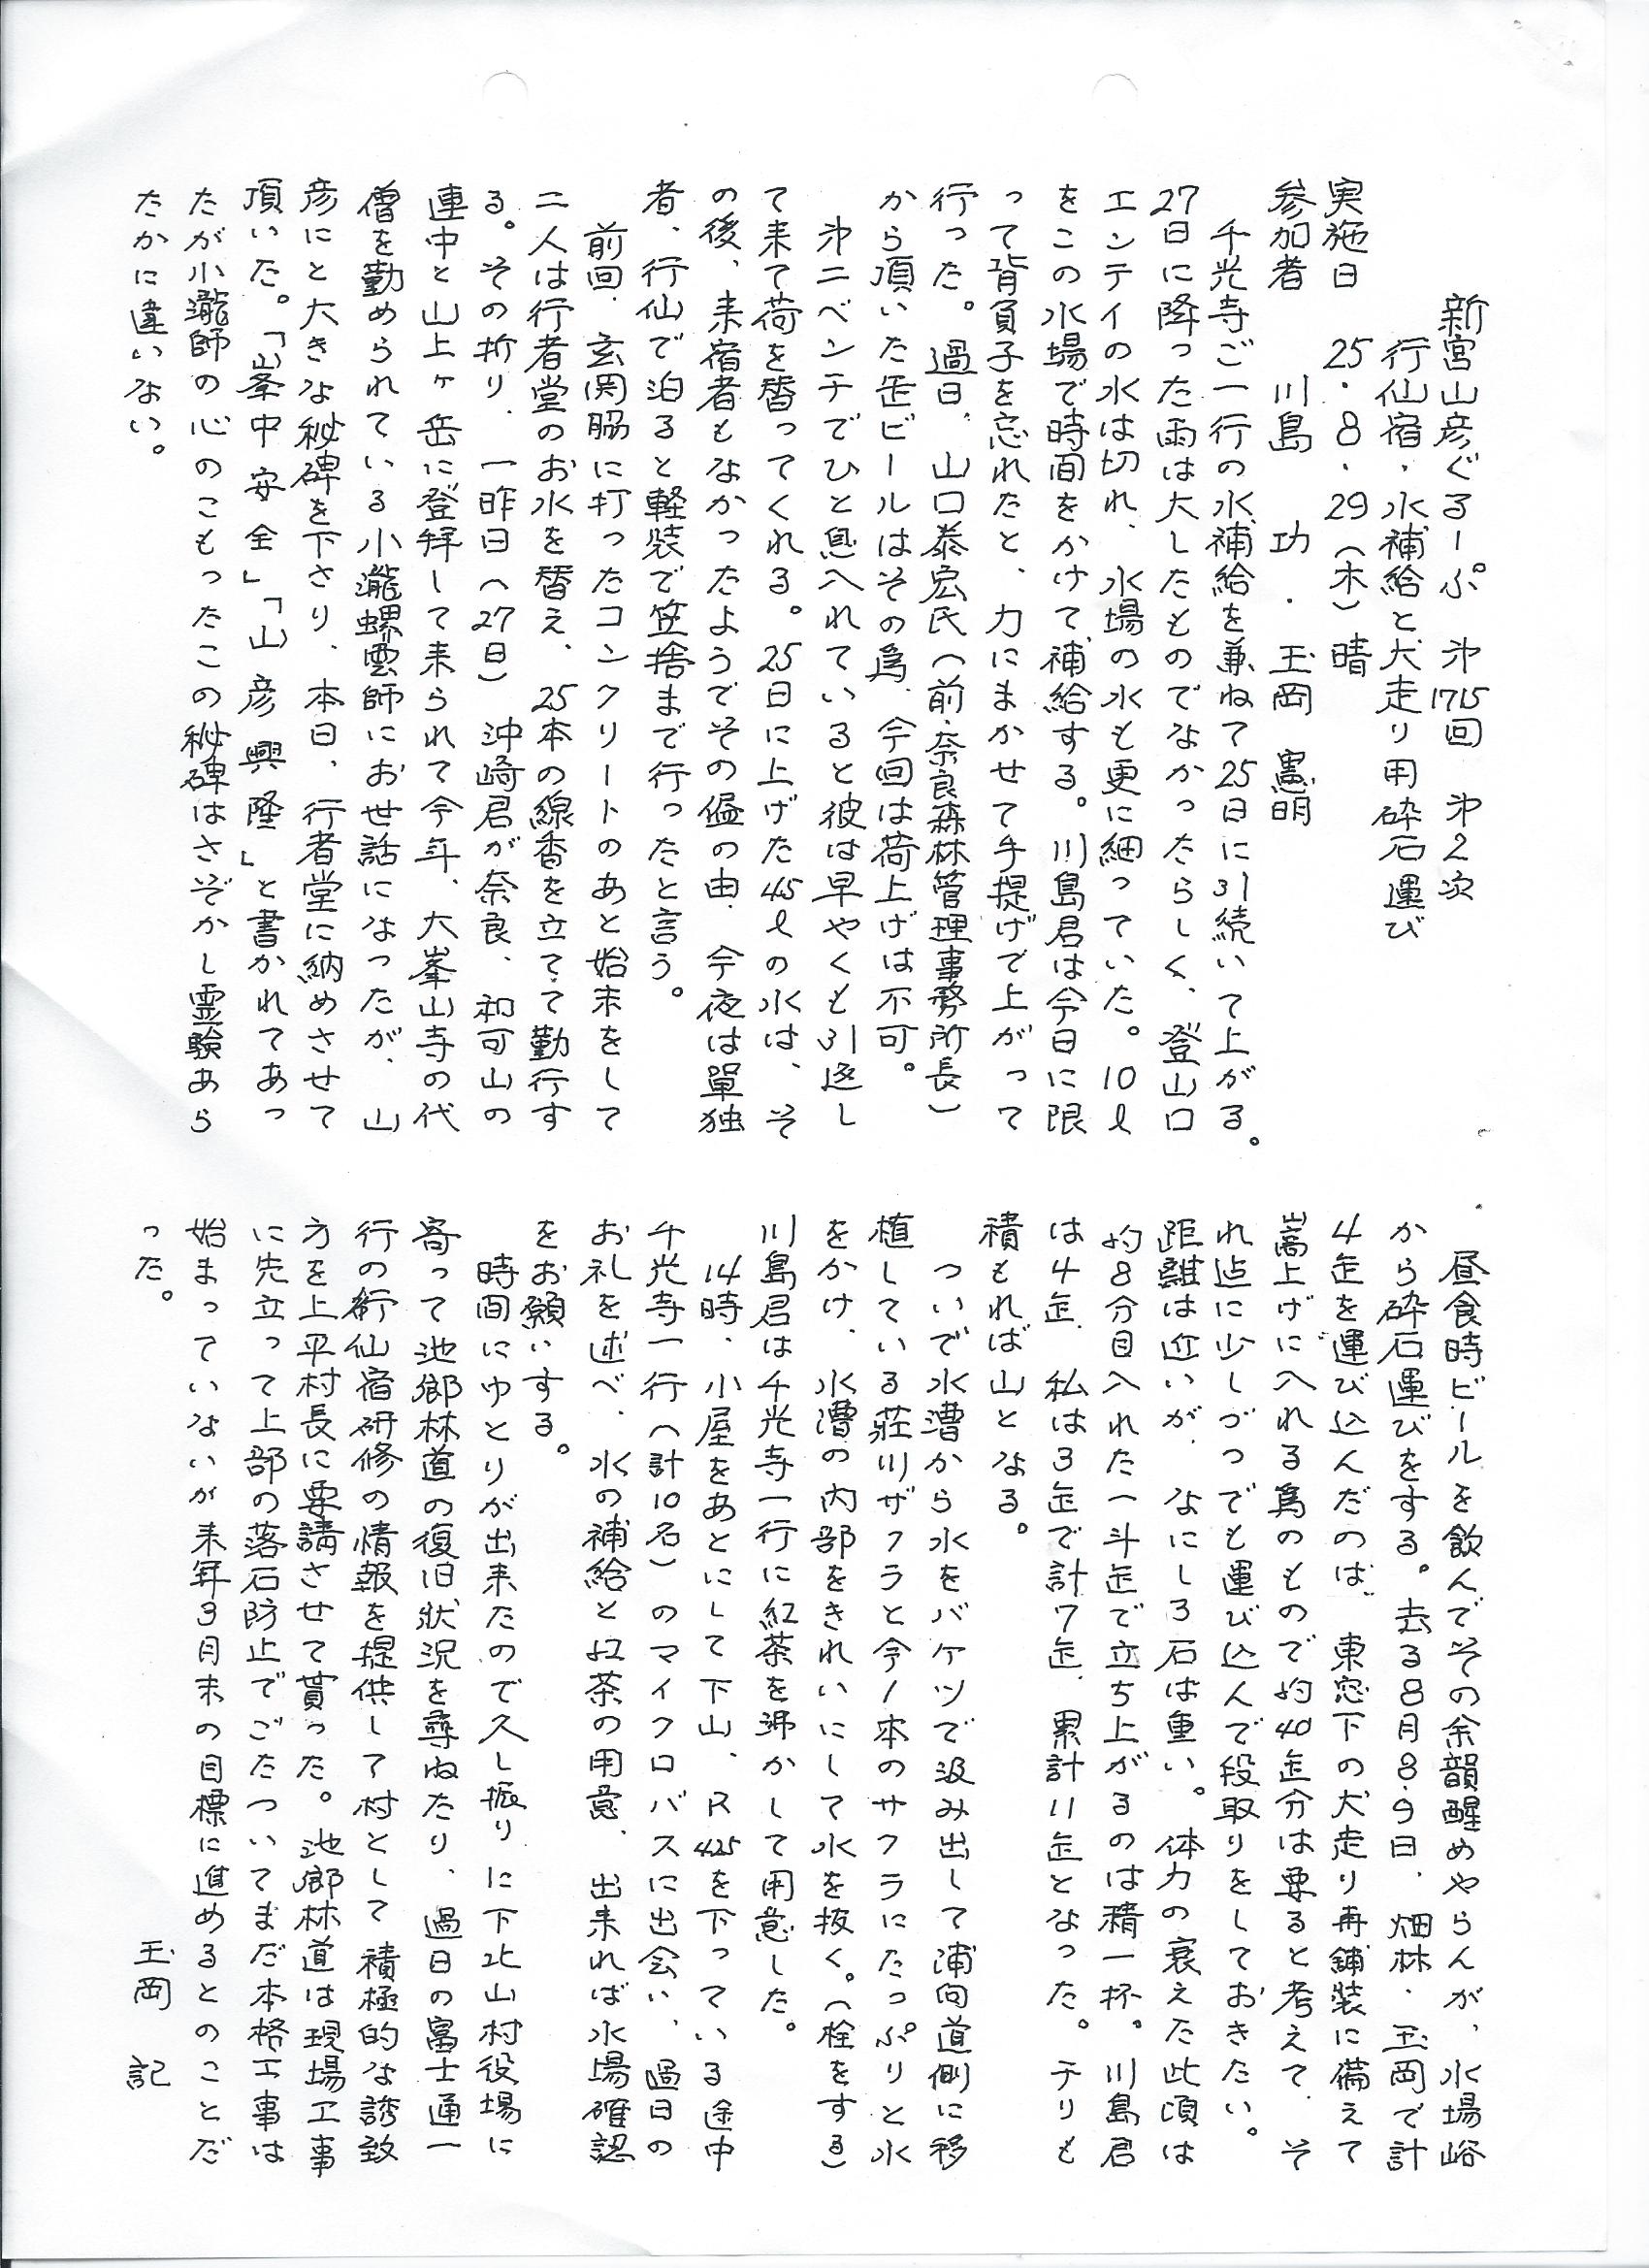 新宮山彦ぐるーぷ 第1715回 第2次
行仙宿・水補給と犬走り用砕石運び
実施日 25・8・29(木)晴
参加者 川島 功・玉岡 憲明
千光寺ご一行の水補給を兼ねて25日に引続いて上がる。
27日に降った雨は大したものでなかったらしく、登山口
エンテイの水は切れ、水場の水も更に細っていた。10ℓ
をこの水場で時間をかけて補給する。川島君は今日に限
って背負子を忘れたと、力にまかせて手提げで上がって
行った。過日、山口泰宏氏(前・奈良森林管理事務所長)
から頂いた缶ビールはその為、今回は荷上げは不可。
第二ベンチでひと息入れていると彼は早やくも引返し
て来て荷を替ってくれる。25日に上げた45ℓの水は、そ
の後、来宿者もなかったようでその儘の由、今夜は単独
者、行仙で泊ると軽装で笠捨まで行ったと言う。
前回、玄関脇に打ったコンクリートのあと始末をして
二人は行者堂のお水を替え、25本の線香を立てて勤行す
る。その折り、一昨日(27日)沖崎君が奈良、和可山の
連中と山上ヶ岳に登拝して来られて今年、大峯山寺の代
僧を勤められている小瀧螺雲師にお世話になったが、山
彦にと大きな秘碑を下さり、本日、行者堂に納めさせて
頂いた。「峯中安全」「山彦興隆」と書かれてあっ
たが小瀧師の心のこもったこの秘碑はさぞかし霊験あら
たかに違いない。
昼食時ビールを飲んでその余韻醒めやらんが、水場峪
から砕石運びをする。去る8月8.9日、畑林・玉岡で計
4缶を運び込んだのは、東窓下の犬走り再舗装に備えて
嵩上げに入れる為のもので約40缶分は要ると考えて、そ
れ迄に少しづつでも運び込んで段取りをしておきたい。
距離は近いが、なにしろ石は重い。体力の衰えた此頃は
約8分目入れた一斗缶で立ち上がるのは精一杯。川島君
は4缶、私は3缶で計7缶、累計11缶となった。チリも
積もれば山となる。
ついで水漕から水をバケツで汲み出して浦向道側に移
植している荘川ザクラと今1本のサクラにたっぷりと水
をかけ、水漕の内部をきれいにして水を抜く。(栓をする)
川島君は千光寺一行に紅茶を沸かして用意した。
14時、小屋をあとにして下山、R425を下っている途中
千光寺一行(計10名)のマイクロバスに出会い、過日の
お礼を述べ、水の補給と紅茶の用意、出来れば水場確認
をお願いする。
時間にゆとりが出来たので久し振りに下北山村役場に
寄って池郷林道の復旧状況を尋ねたり、過日の富士通一
行の行仙宿研修の情報を提供して村として積極的な誘致
方を上平村長に要請させて貰った。池郷林道は現場工事
に先立って上部の落石防止でごたついてまだ本格工事は
始まっていないが来年3月末の目標に進めるとのことだ
った。
玉岡 記